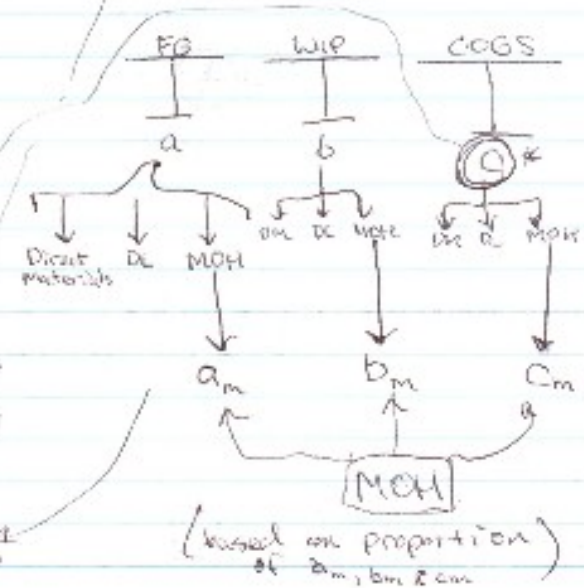 FG WIP COGS
a b C *
Direct Materials DL MOH DM DL MOH DM DL MOH
a_m b_m C_m
MOH
(based on proportion
of a_m, b_m & c_m)